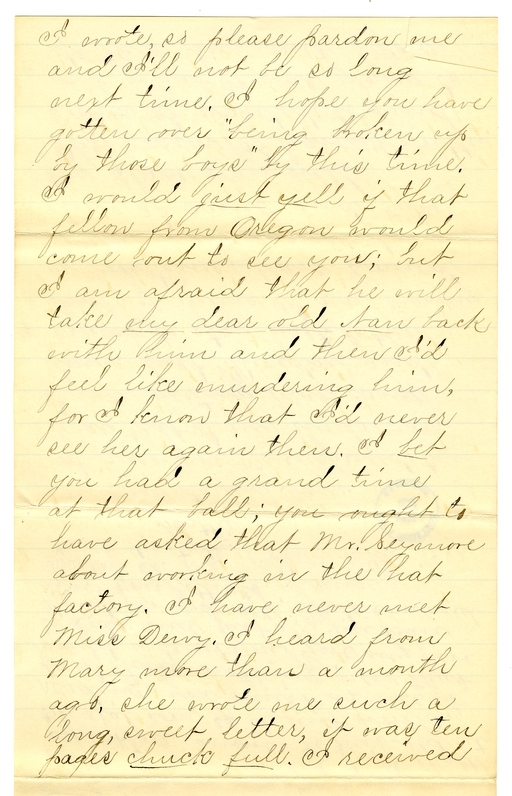 I wrote, so please pardon me
and I'll not be so long
next time. I hope you have
gotten over "being broken up
by those boys" by this time.
I would just yell if that
fellow from Oregon would
come out to see you; but
I am afraid that he will
take my dear old Nan back
with him and then I'd
feel like murdering him,
for I know that I'd never
see her again then. I bet
you had a grand time
at that ball; you ought to
have asked that Mr. Seymore
about working in the hat
factory. I have never met
Miss Dewy. I heard from
Mary more than a month
ago, she wrote me such a
long, sweet letter, it was ten
pages chuck full. I received